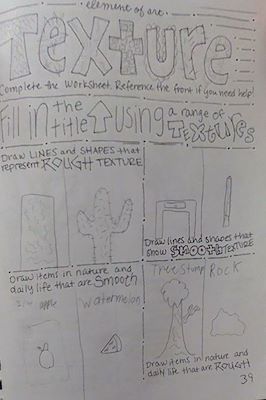 element of art
Texture
Complete the Worksheet. Reference the front if you need help!
Fill in the title using a range of TEXTURES
Draw LINES and SHAPES that
represent ROUGH TEXTURE
Draw lines and shapes that
show SMOOTH TEXTURE
Draw items in nature and
daily life that are Smooth
apple
Watermelon
Tree Stump
Rock
Draw items in nature and
daily life that are ROUGH
39